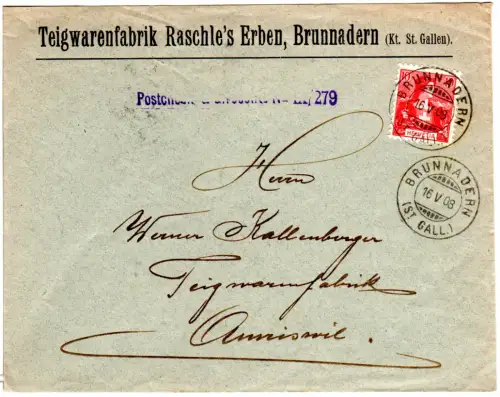 Teigwarenfabrik Raschle's Erben, Brunnadern (Kt. St. Gallen).
Postcheck- & Giroconto No III/279
BRUNNADERN
16 V 08
(ST. GALL.)
HELVETIA
BRUNNADERN
16 V 08
(ST. GALL.)
Herrn
Werner Kallenberger
Teigwarenfabrik
Amriswil.